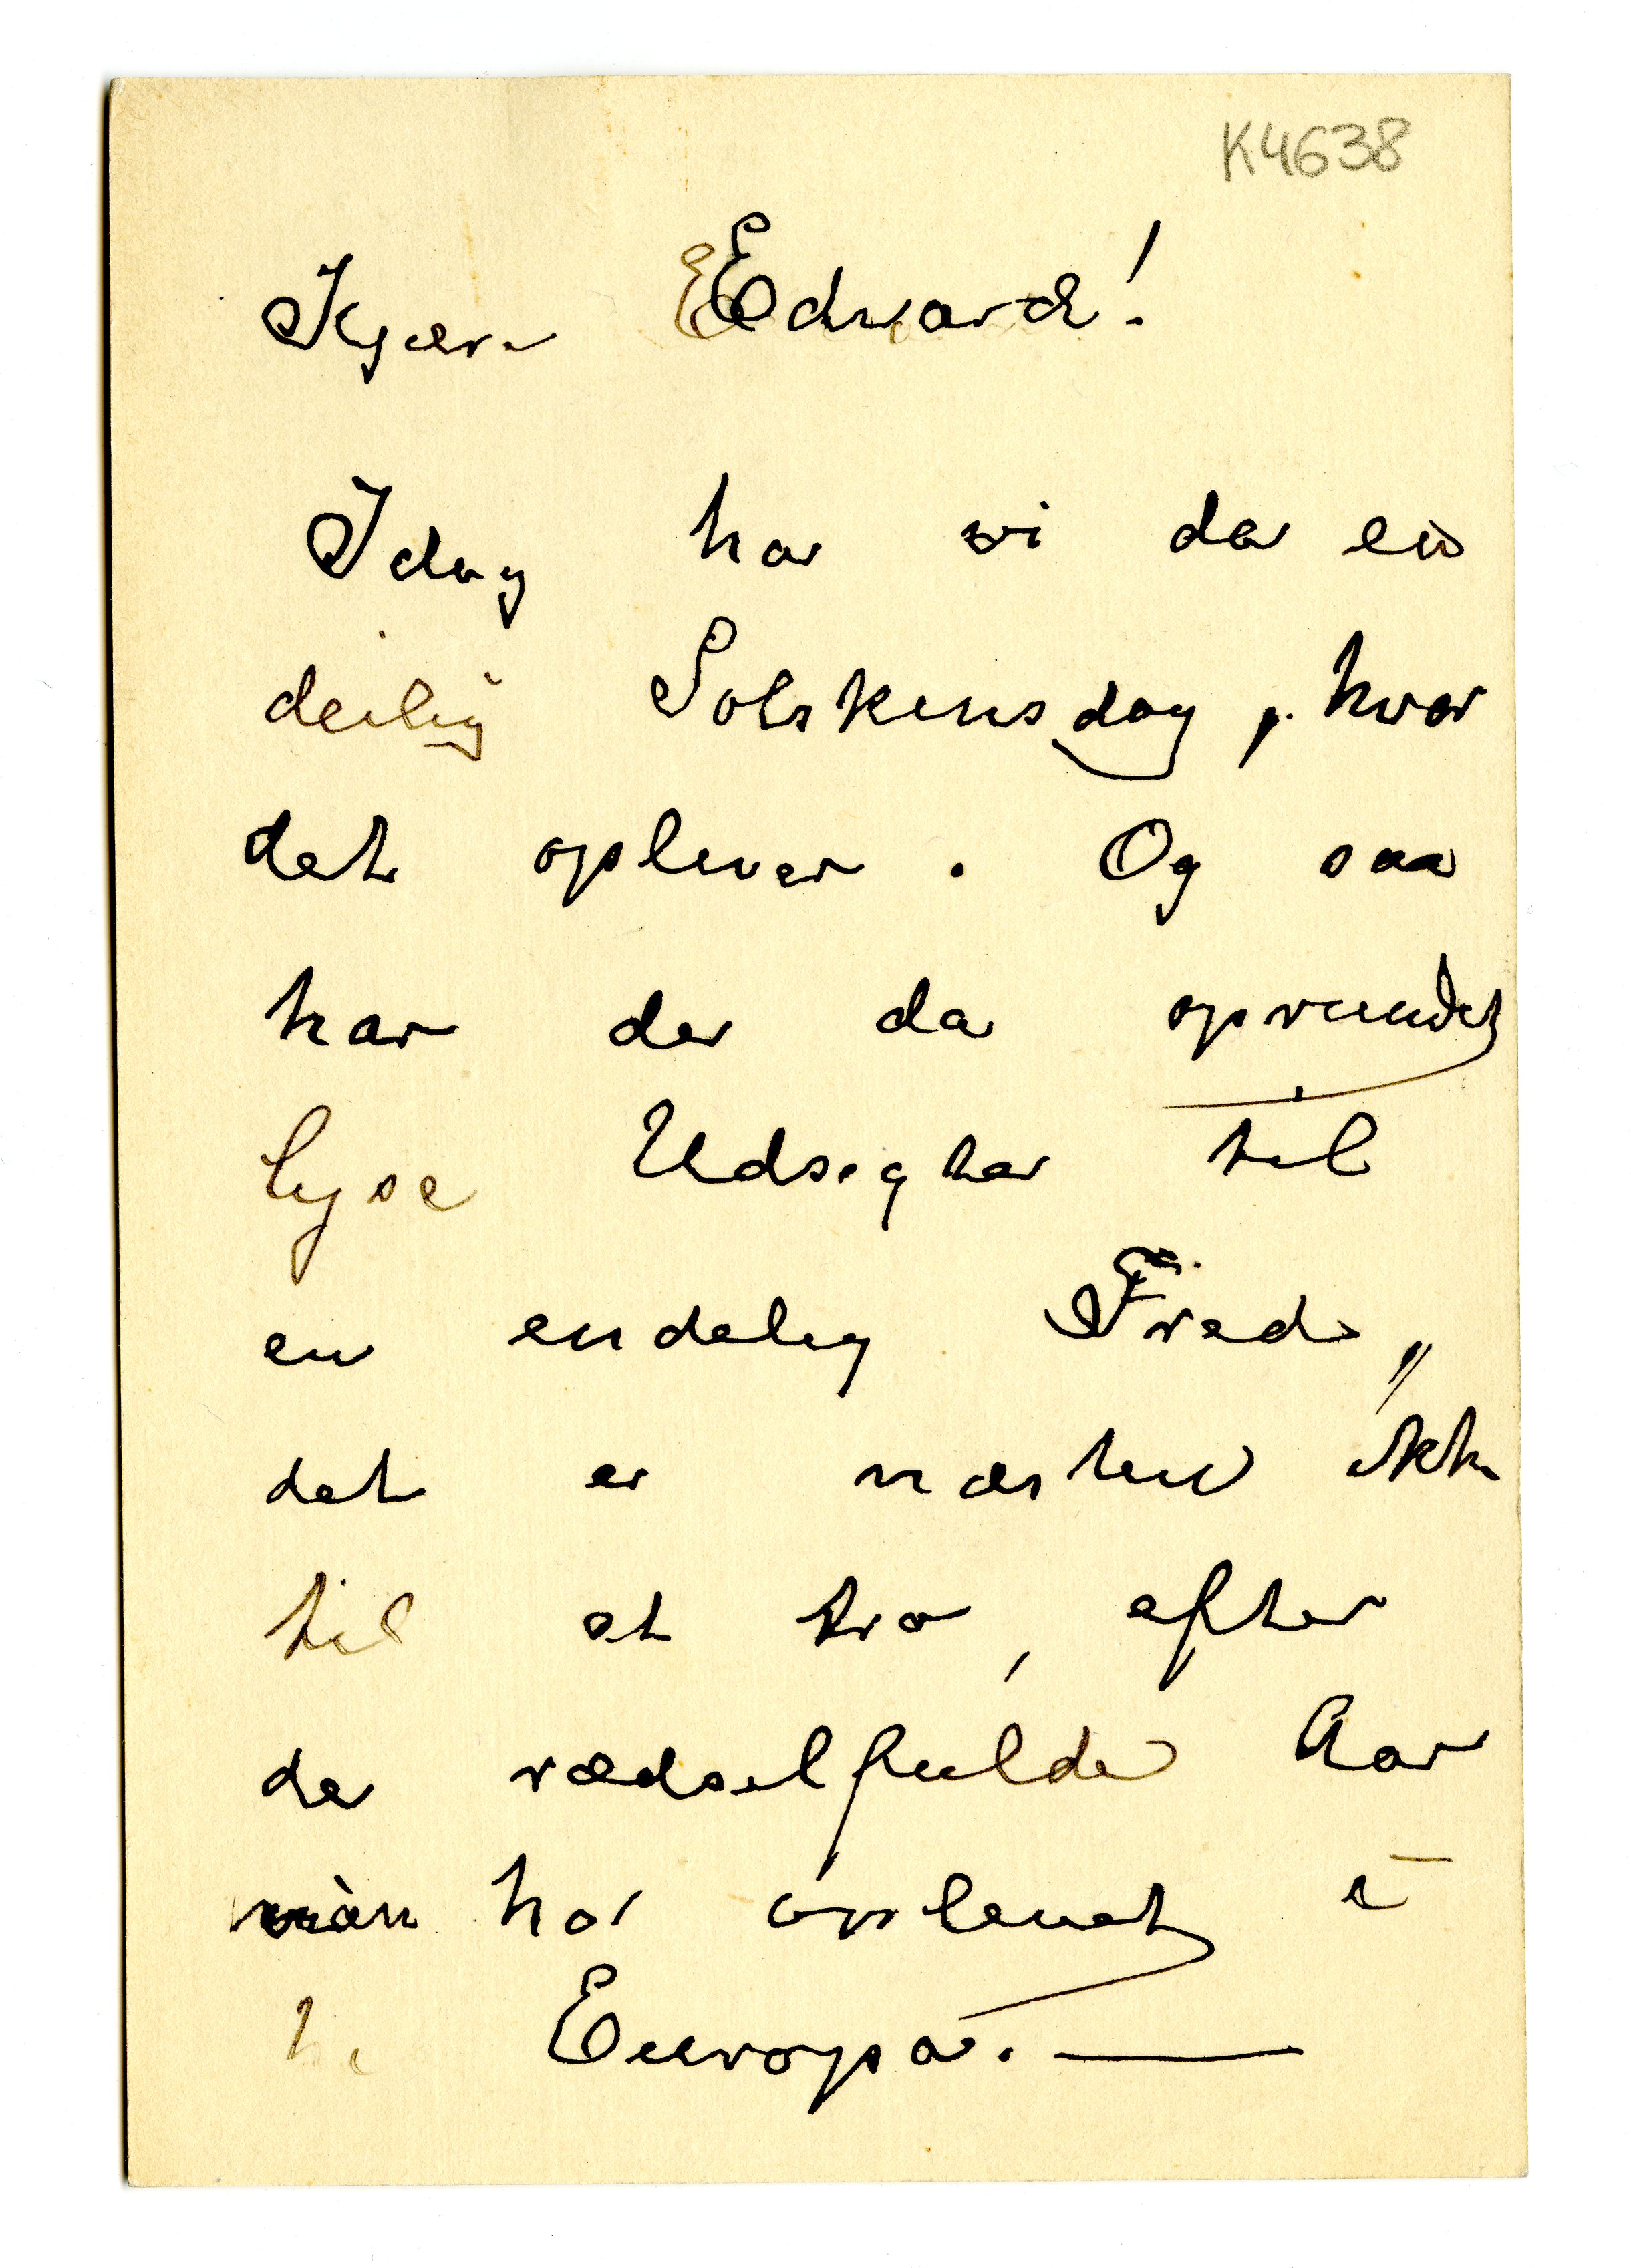 K4638
Kjære Edvard!
Idag har vi da en
deilig Solskensdag, hvor
det oplever. Og saa
har der da oprundet
lyse Udsigter til
en endelig Fred,
det er næsten ikke
til at tro, efter
de rædselfulde Aar
man har oplevet i
Europa. —